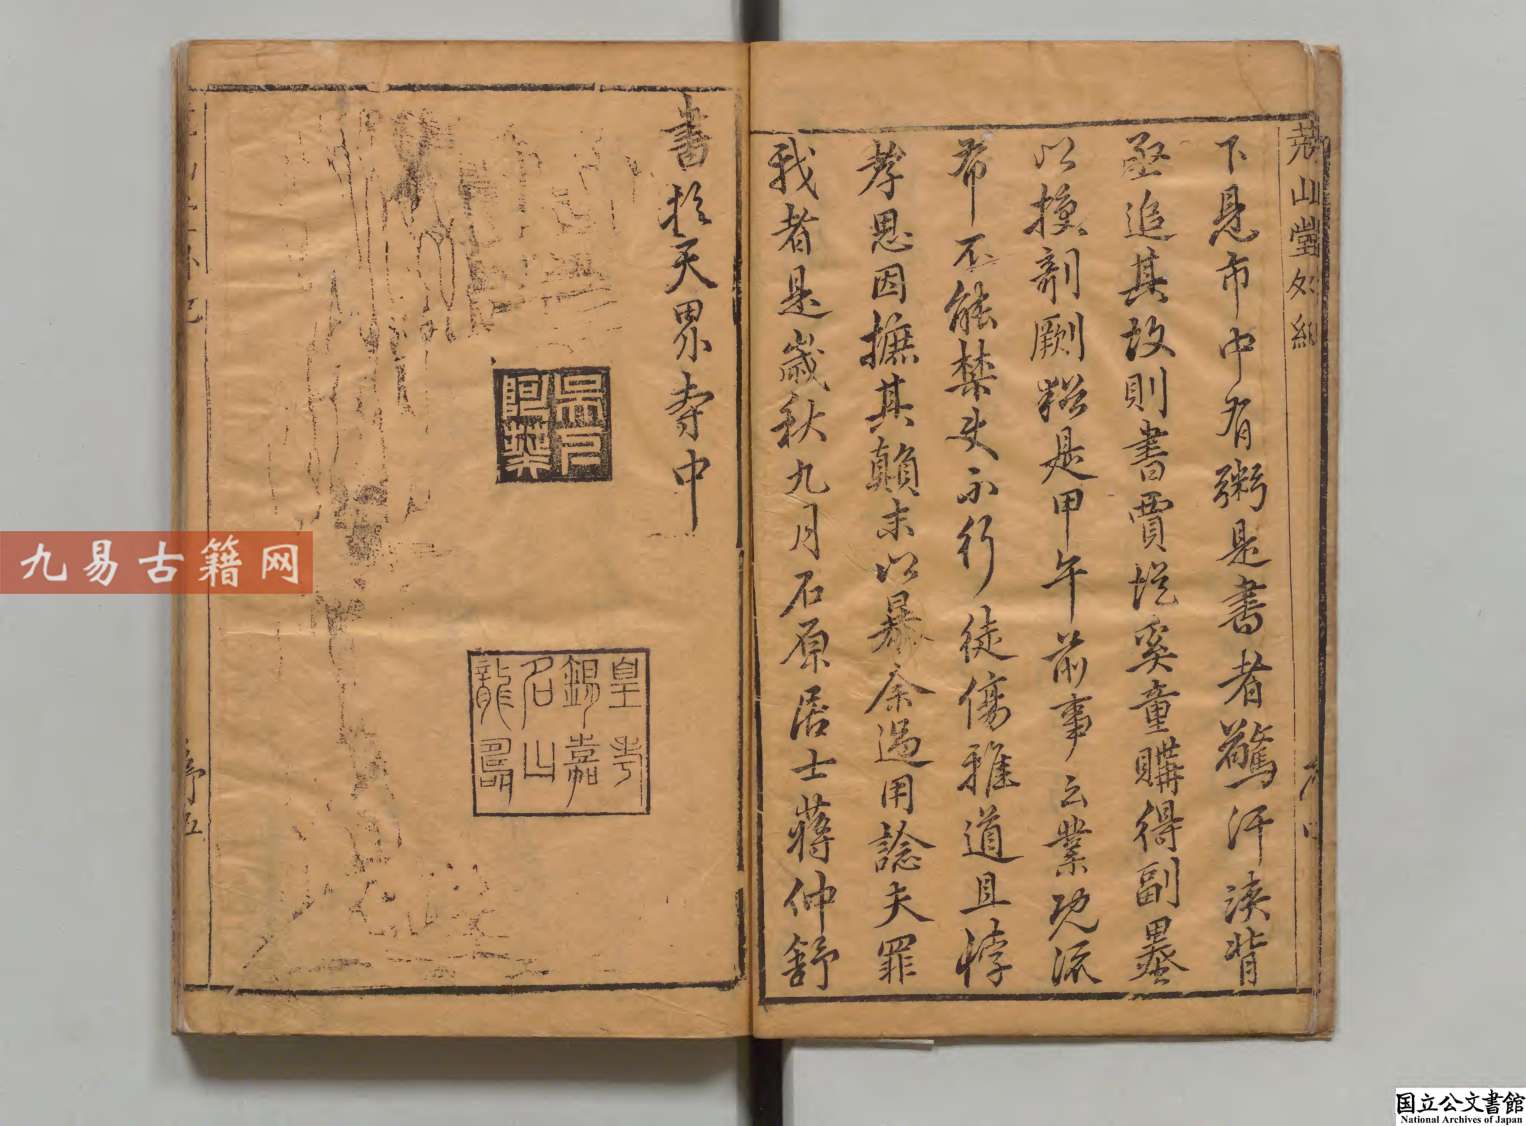 堯山堂外紀
下急市中有粥是書者驚汗浹背
亟追其故則書賈從奚童購得副墨
以摸剞劂耀是甲午前事云業既流
布不能禁史而行徒傷雅道且悖
孝思因摭其顛末以暴余過用諗夫罪
我者是歲秋九月石原居士蔣仲舒
書於天界寺中
皇考
錫嘉
名山
龍
序五
九易古籍网
国立公文書館
National Archives of Japan